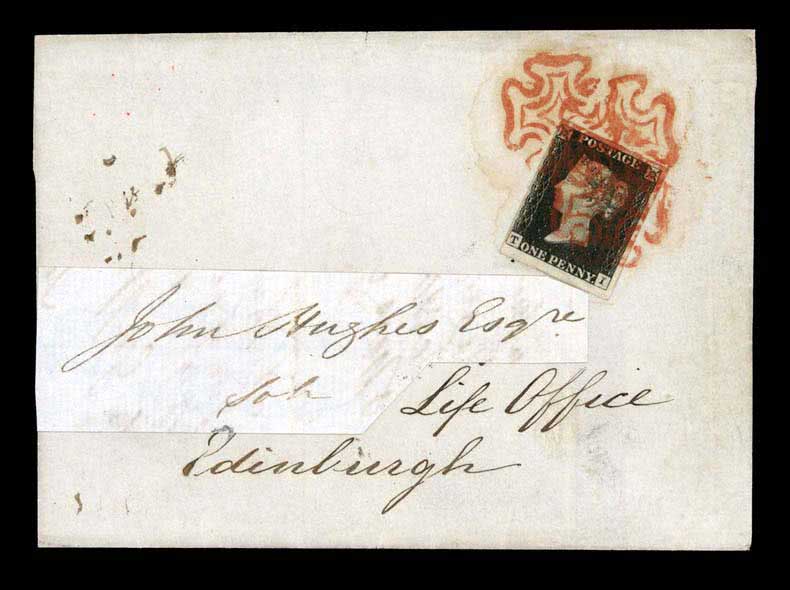 POSTAGE
T ONE PENNY I
John Hughes Esqre
Life Office
Edinburgh